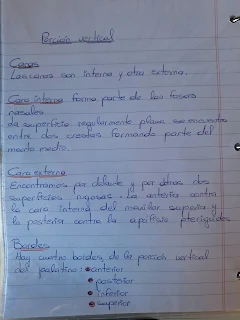 Porción vertical
Caras
Las caras son interna y otra externa.
Cara interna forma parte de las fosas
nasales.
La superficie regularmente plana se encuentra
entre dos crestas formando parte del
meato medio.
Cara externa
Encontramos por delante y por atras dos
superficies rugosas. La anterior contra
la cara interna del maxilar superior y
la posterior contra la apófisis pterigoides
Bordes
Hay cuatro bordes de la porción vertical
del palatino: • anterior
• posterior
• inferior
• superior